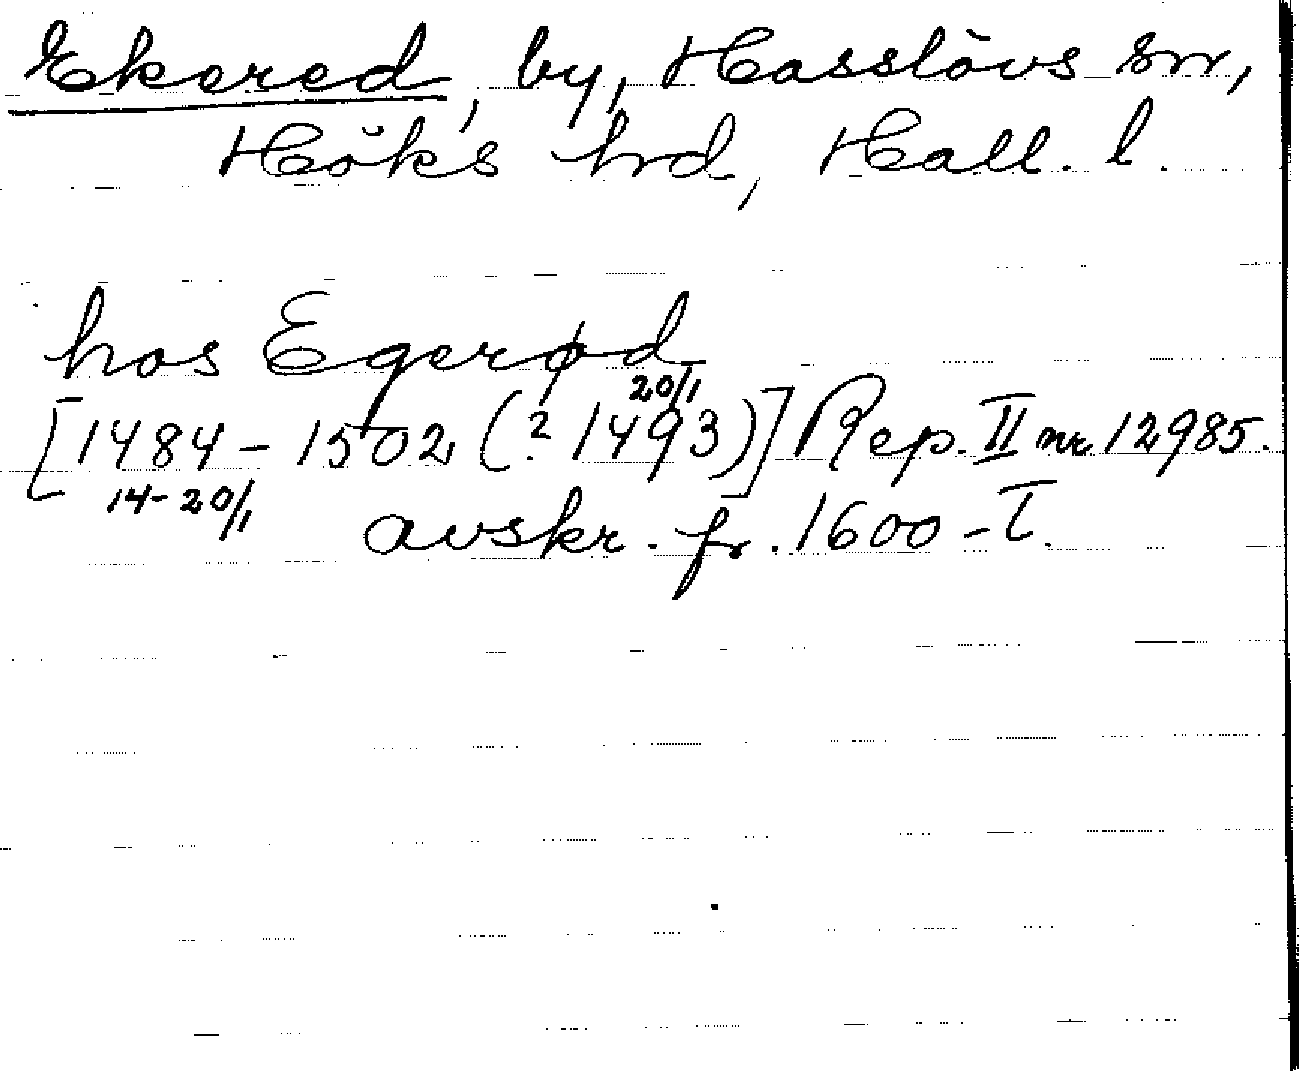 Ekered, by, Hasslövs sn,
Höks hd, Hall. l.
hos Egerød
20/1
[1484-1502 (? 1493)] Rep. II nr 12985.
14-20/1
avskr. fr. 1600-T.